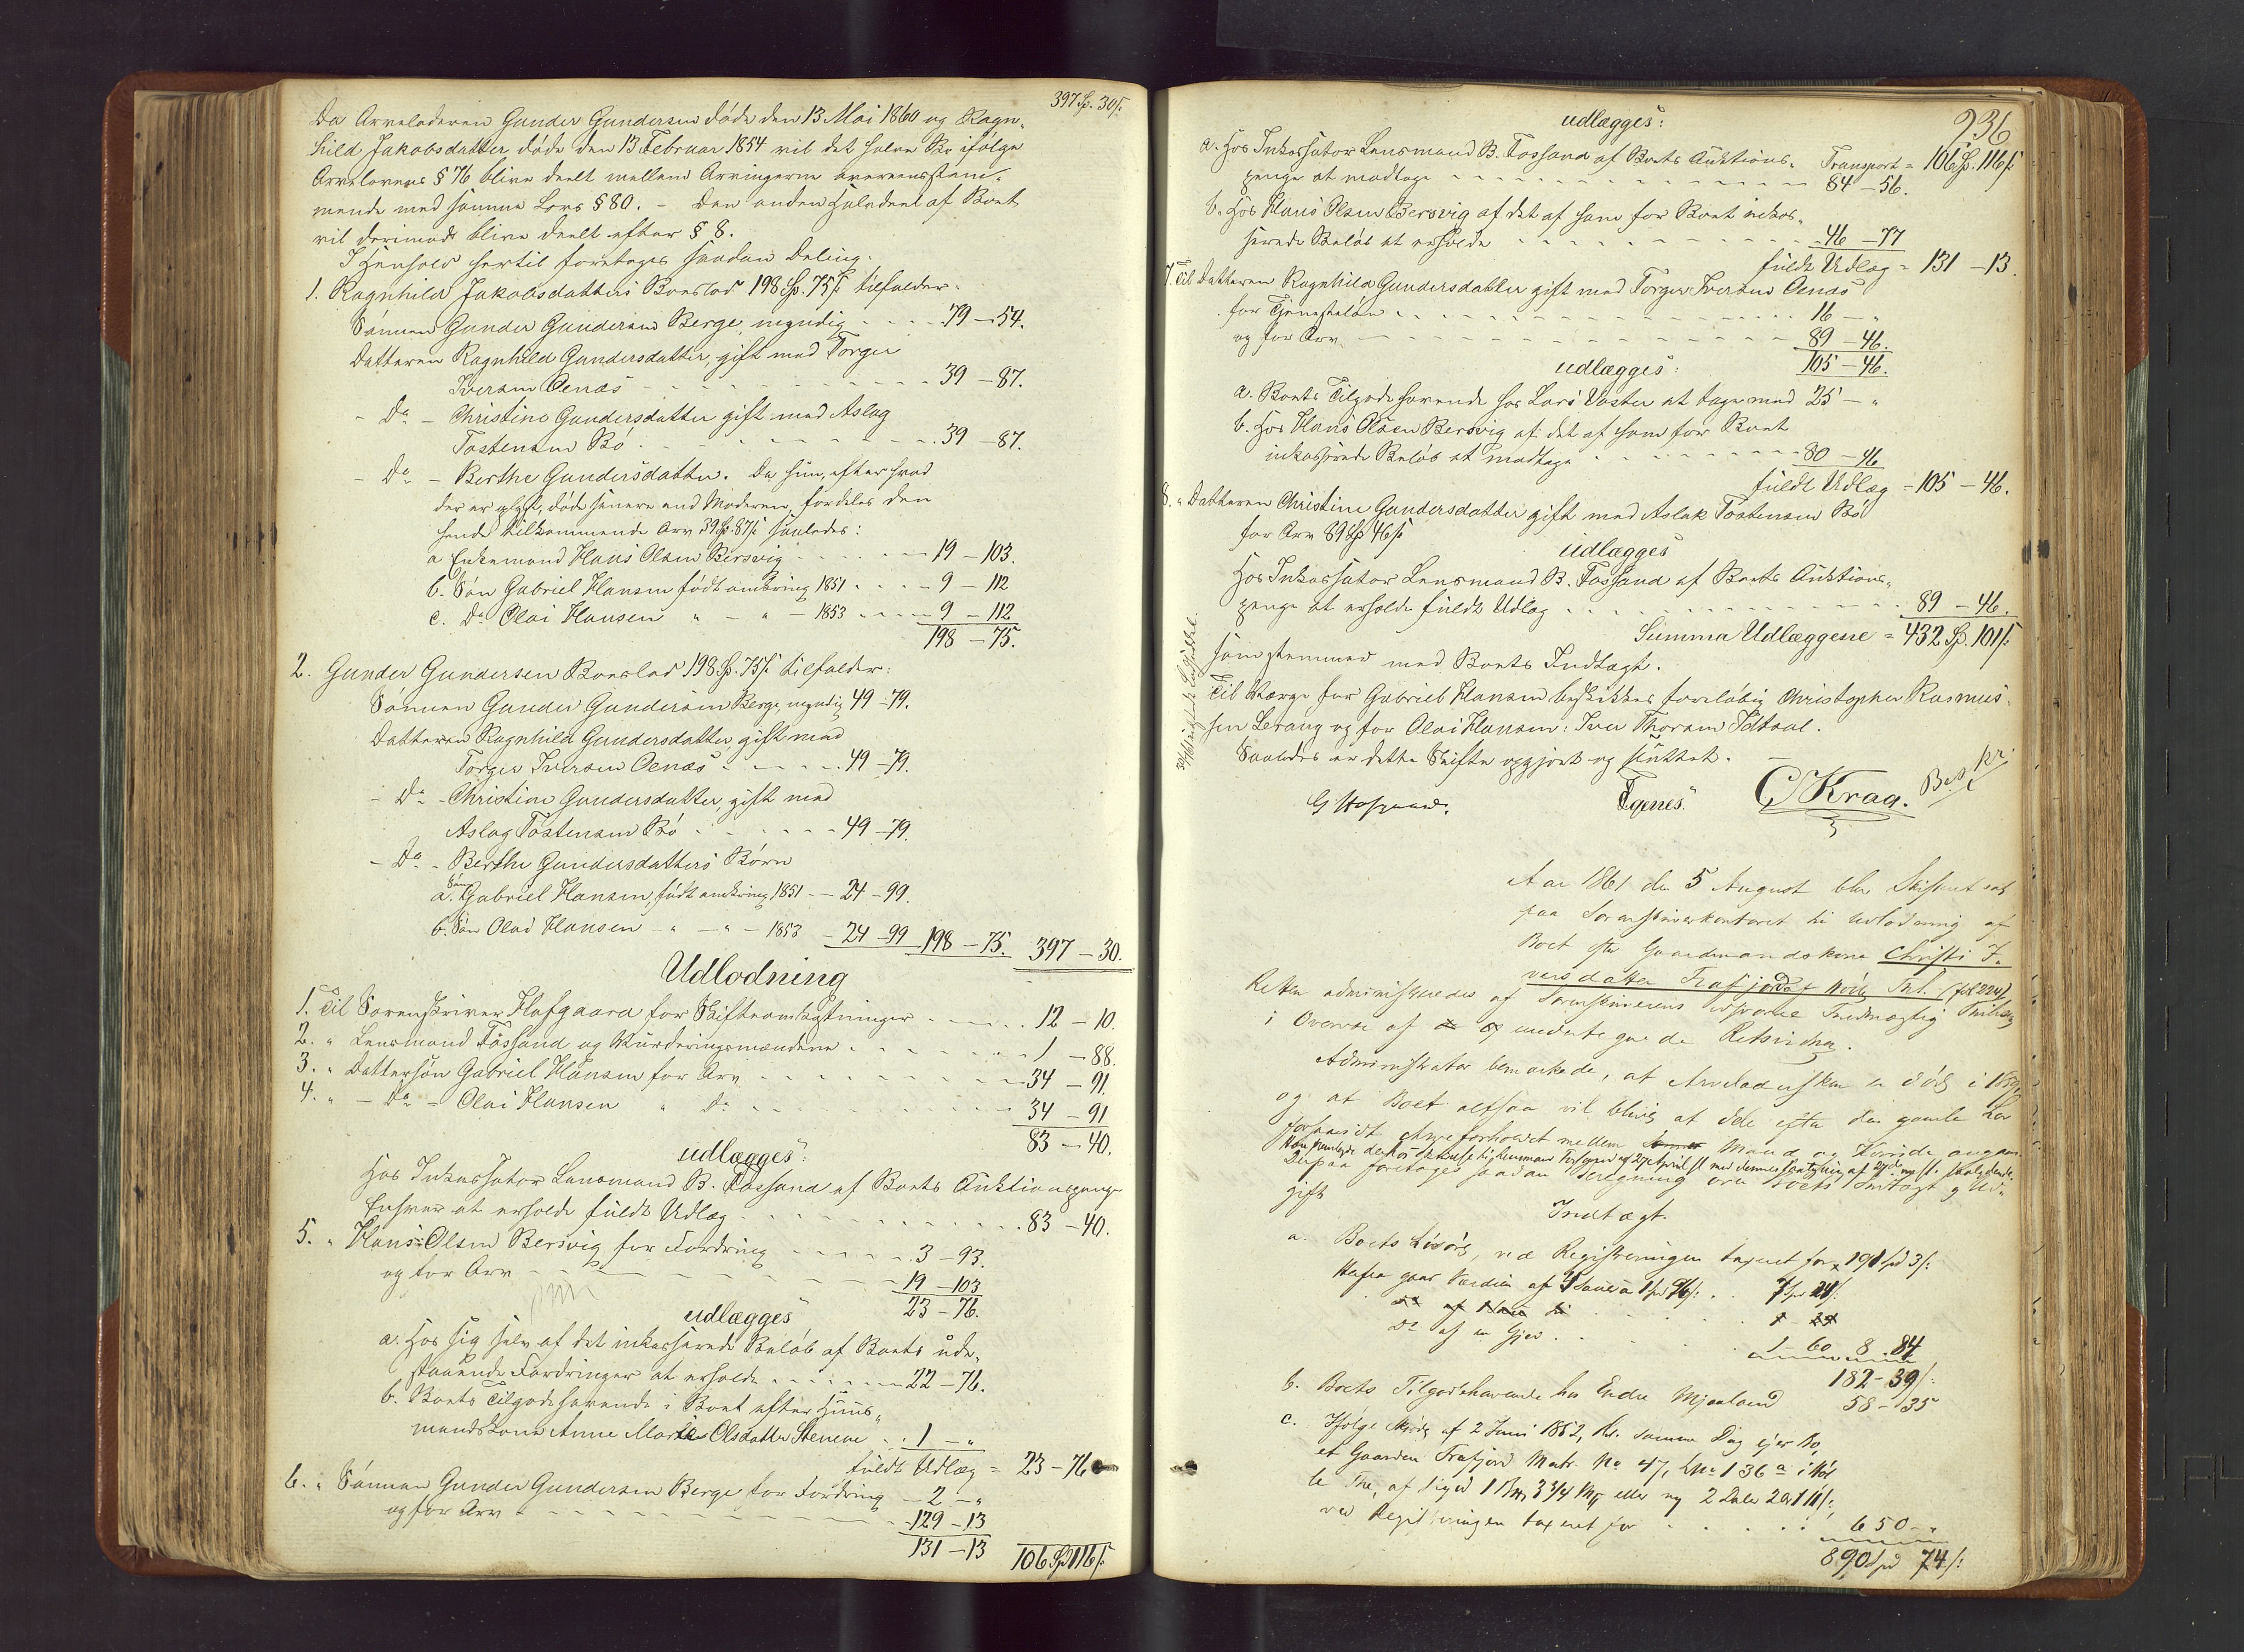 397 Sp. 30 ß.
Da Arveladeren Gunder Gundersen døde den 13 Mai 1860 og Ragn-
hild Jakobsdatter døde den 13 Februar 1854 vil det halve Bo ifølge
Arvelovens § 76 blive deelt mellem Arvingerne overeensstem-
mende med samme Lovs § 80. – Den anden Halvdeel af Boet
vil derimod blive deelt efter § 8.
I Henhold hertil foretages saadan Deling:
1. Ragnhild Jakobsdatters Boeslod 198 Sp. 75 ß tilfalder:
Sønnen Gunder Gundersen Berge, myndig 79 – 54.
Datteren Ragnhild Gundersdatter, gift med Torger
Iversen Oenæs 39 – 87.
– Do – Christine Gundersdatter gift med Aslag
Tostensen Bø 39 – 87.
– Do – Berthe Gundersdatter. Da hun, efter hvad
der er oplyst, døde senere end Moderen, fordeles den
hende tilkommende Arv 39 Sp. 87 ß saaledes:
a Enkemand Hans Olsen Bersvig 19 – 103.
b. Søn Gabriel Hansen født omkring 1851 9 – 112
c. Do Olai Hansen " – " – 1853 9 – 112
198 – 75.
2. Gunder Gundersen Boeslod 198 Sp. 75 ß tilfalder:
Sønnen Gunder Gundersen Berge, myndig 49 – 79.
Datteren Ragnhild Gundersdatter gift med
Torger Iversen Oenæs 49 – 79.
– Do – Christine Gundersdatter, gift med
Aslag Tostensen Bø 49 – 79.
– Do – Berthe Gundersdatters Børn
a. Søn Gabriel Hansen, født omkring 1851 – 24 – 99.
b. Søn Olai Hansen – " – " – 1853 – 24 – 99 198 – 75. 397 – 30.
Udlodning
1. Til Sorenskriver Hofgaard for Skifteomkostninger 12 – 10.
2. " Lensmand Fossand og Vurderingsmændene 1 – 88.
3. " Dattersøn Gabriel Hansen for Arv 34 – 91.
4. " – Do – Olai Hansen " Do 34 – 91
83 – 40.
udlægges:
Hos Inkassator Lensmand B. Fossand af Boets Auktionspenge
Enhver at erholde fuldt Udlæg 83 – 40.
5. " Hans Olsen Bersvig for Fordring 3 – 93.
og for Arv 19 – 103
23 – 76.
udlægges
a. Hos sig selv af det inkasserede Beløb af Boets ude-
staaende Fordringer at erholde 22 – 76.
b. Boets Tilgodehavende i Boet efter Huus-
mandskone Anne Marie Olsdatter Stenene 1 – "
fuldt Udlæg = 23 – 76
6. " Sønnen Gunder Gundersen Berge for Fordring – 2 – "
og for Arv 129 – 13
131 – 13 106 Spd 116 ß.
936
udlægges:
Transport = 106 Sp. 116 ß
a. Hos Inkassator Lensmand B. Fossand af Boets Auktions-
penge at modtage 84 – 56.
b. Hos Hans Olsen Bersvig af det af ham for Boet inkas-
serede Beløb at erholde 46 – 77
fuldt Udlæg = 131 – 13.
7. Til Datteren Ragnhild Gundersdatter gift med Torger Iversen Oenæs
for Tjenesteløn 16 – "
og for Arv 89 – 46.
105 – 46.
udlægges:
a. Boets Tilgodehavende hos Lars Vaster at tage med 25 – "
b. Hos Hans Olsen Bersvig af det af ham for Boet
inkasserede Beløb at modtage 80 – 46
fuldt Udlæg = 105 – 46.
8. " Datteren Christine Gundersdatter gift med Aslak Tostensen Bø
for Arv 89 Sp 46 ß
udlægges
Hos Inkassator Lensmand B. Fossand af Boets Auktions-
penge at erholde fuldt Udlæg 89 – 46.
Summa Udlæggene = 432 Sp. 101 ß
som stemmer med Boets Indtægt.
Til Værge for Gabriel Hansen beskikkes foreløbig Christopher Rasmus-
sen Lerang og for Olai Hansen: Iver Thorsen Idsaal.
Saaledes er dette Skifte opgjort og sluttet.
G Hofgaard. Tgenes. C Krag.
Aar 1861 den 5 August blev Skifteret sat
paa Sorenskriverkontoret til Udlodning af
Boet efter Gaardmandskone Christi I-
versdatter Trafjord af Høle Tnl. (fol 224)
Retten administreredes af Sorenskriverens Fuldmægtig
i Overvær af undertegnede Retsvidner.
Administrator bemærkede, at Arveladersken er død i
og at Boet altsaa vil blive at dele efter den gamle Lov
forsaavidt Arveforholdet mellem Mand og Kvinde angaar.
Derpaa foretages saadan Beregning over Boets Indtægt og Ud-
gift
Indtægt.
a. Boets Løsøre, ved Registreringen taxeret for 191 spd 3 ß:
Herfra gaar Værdien af 4 Sauer a 1 spd 96 ß: 7 spd 24 ß:
Do af en Gjed 1 – 60 8 . 84
182 – 39 ß:
b. Boets Tilgodehavende hos Endre Mjaaland 58 – 35
c. Ifølge Skjøde af 2 Juni 1852, samme Dag ejer Bo-
et Gaarden Trafjord Matr. No 47, LNo 136 a i Høl-
le Tnl, af Skyld 2 Daler 2 Ort 11 ß:,
ved Registreringen taxeret for 650 – "
890 spd 74 ß: